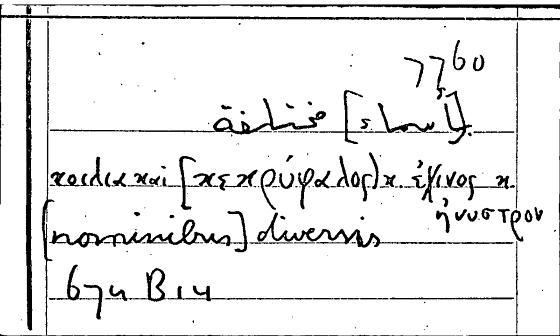 7760
[أسماء] مختلفة
κοιλία καὶ [κεκρύφαλος] κ. ἐχῖνος κ.
ἤνυστρον
[nominibus] diversis
674 B 14